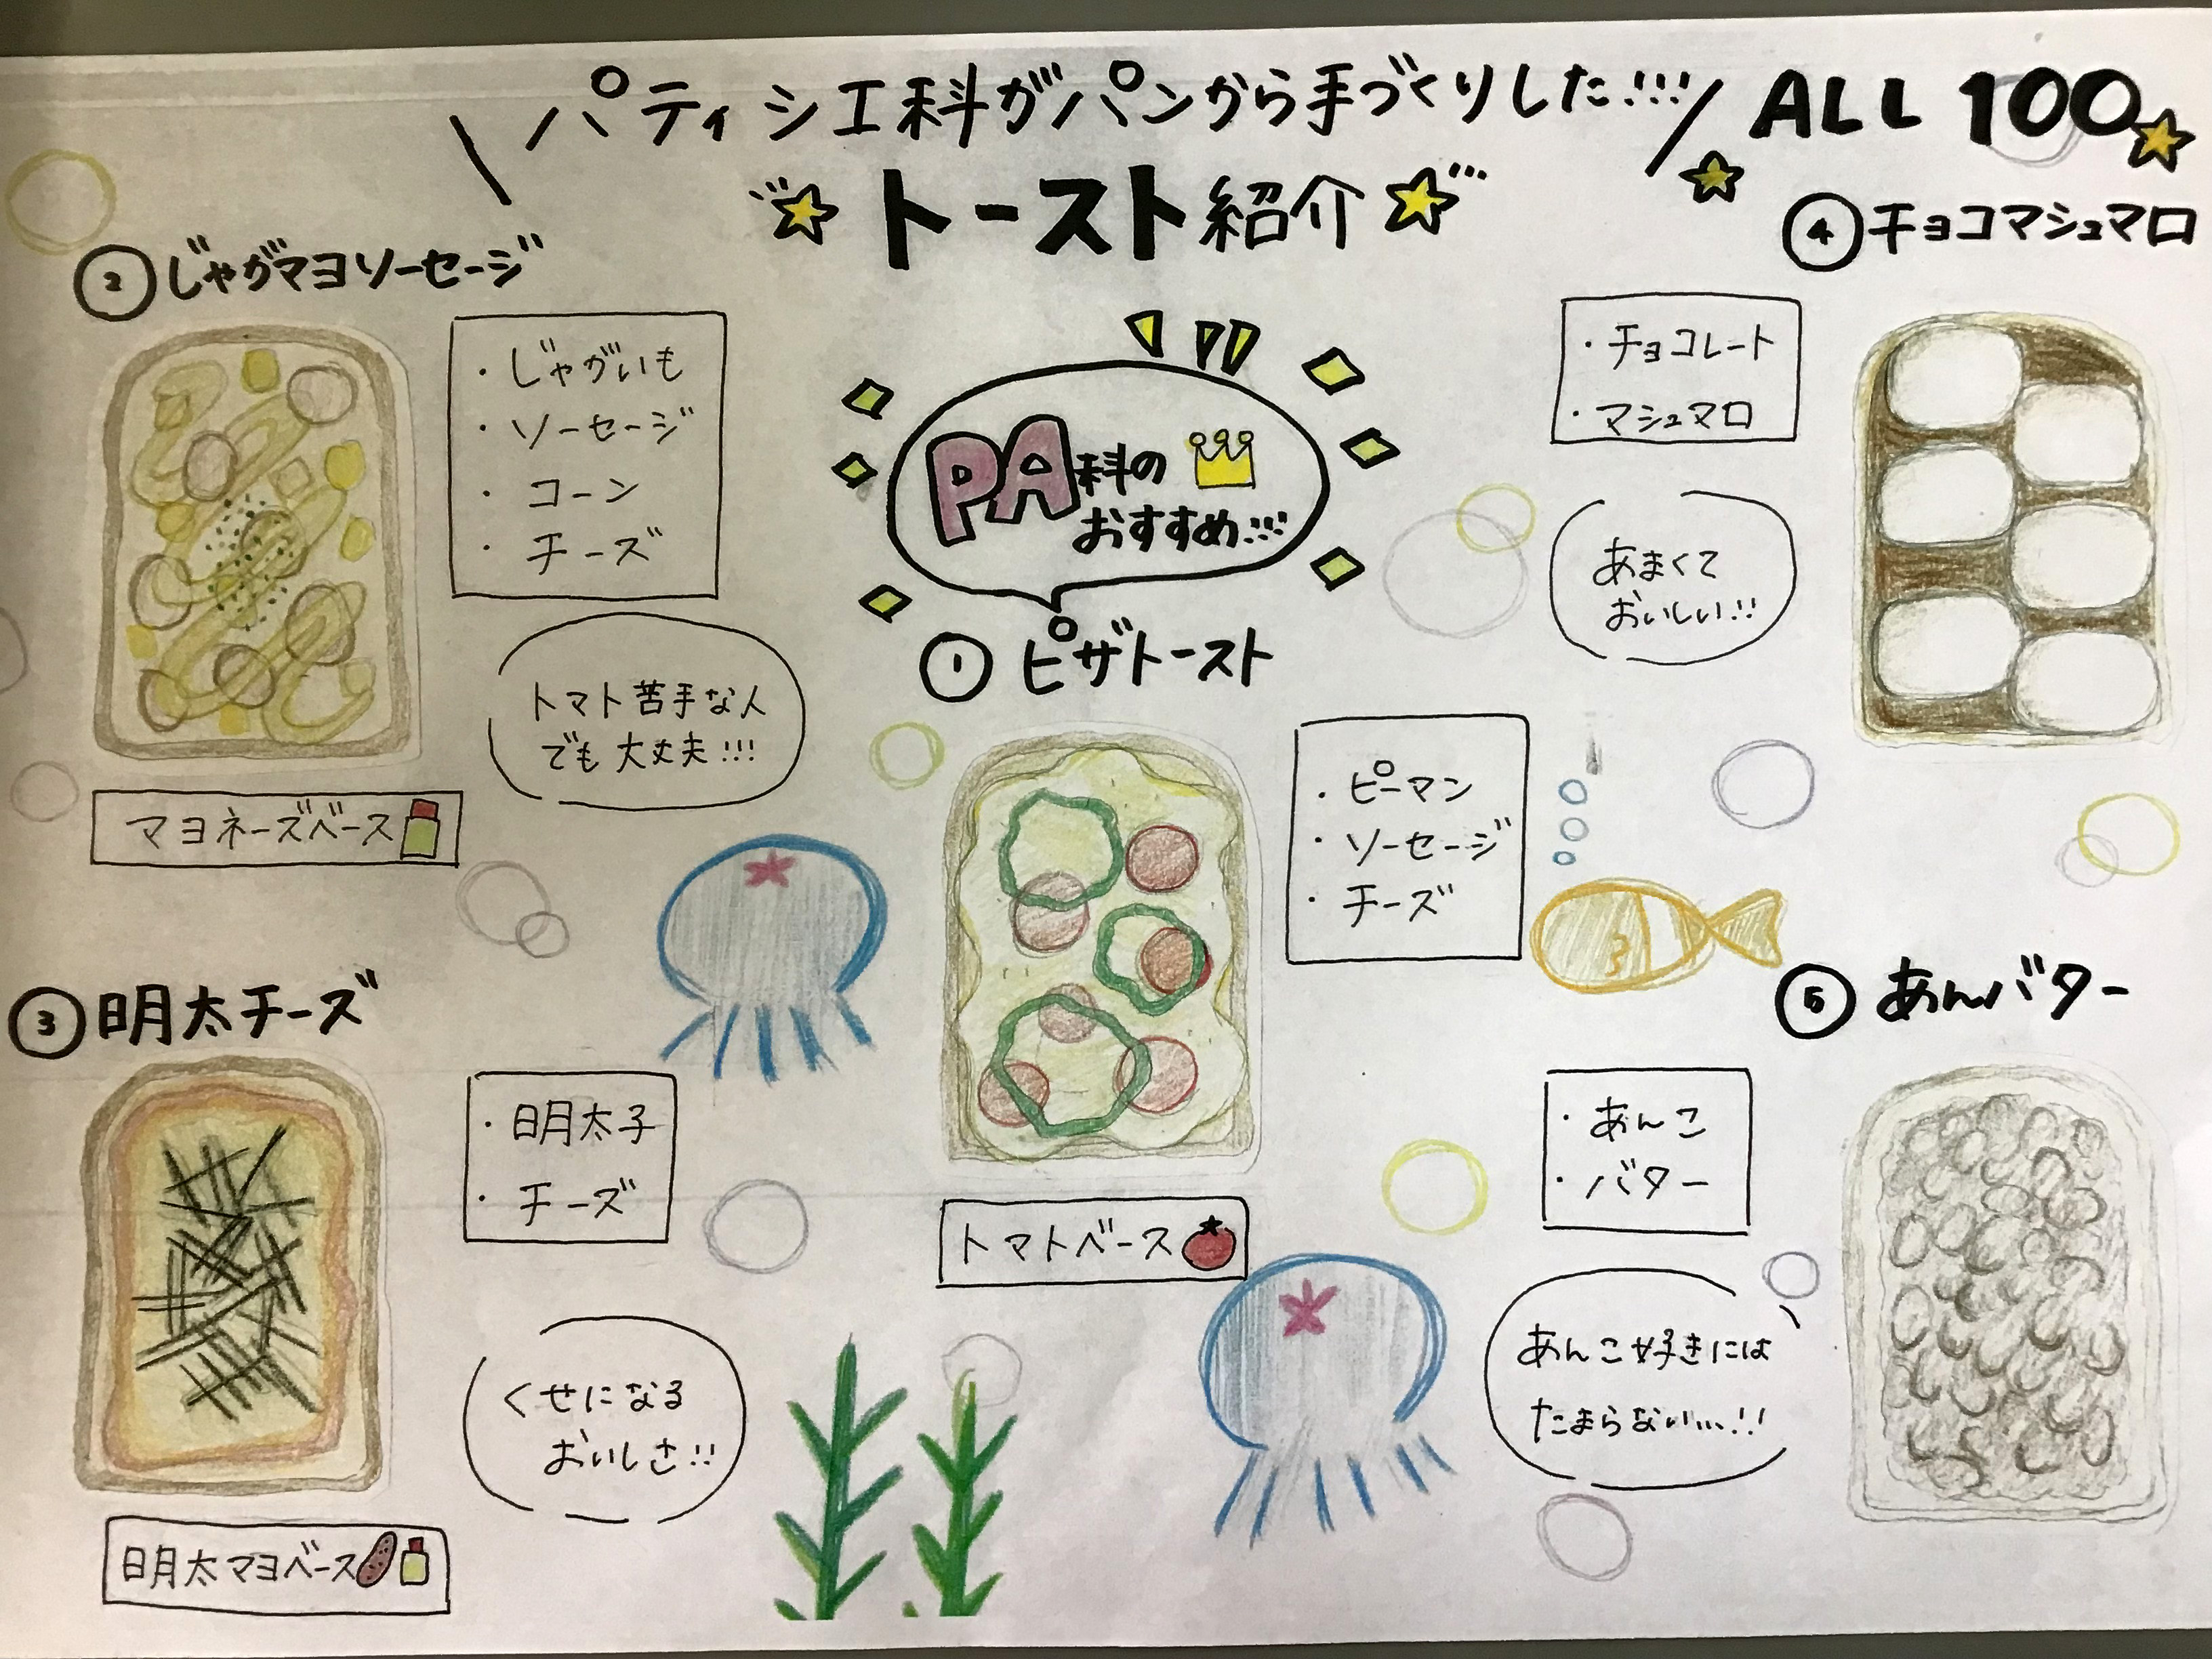 パティシエ科がパンから手づくりした!!!
ALL 100
トースト紹介
PA科の
おすすめ!!!
① ピザトースト
・ピーマン
・ソーセージ
・チーズ
トマトベース
② じゃがマヨソーセージ
・じゃがいも
・ソーセージ
・コーン
・チーズ
トマト苦手な人
でも大丈夫!!!
マヨネーズベース
③ 明太チーズ
・明太子
・チーズ
くせになる
おいしさ!!
明太マヨベース
④ チョコマシュマロ
・チョコレート
・マシュマロ
あまくて
おいしい!!
⑤ あんバター
・あんこ
・バター
あんこ好きには
たまらない...!!